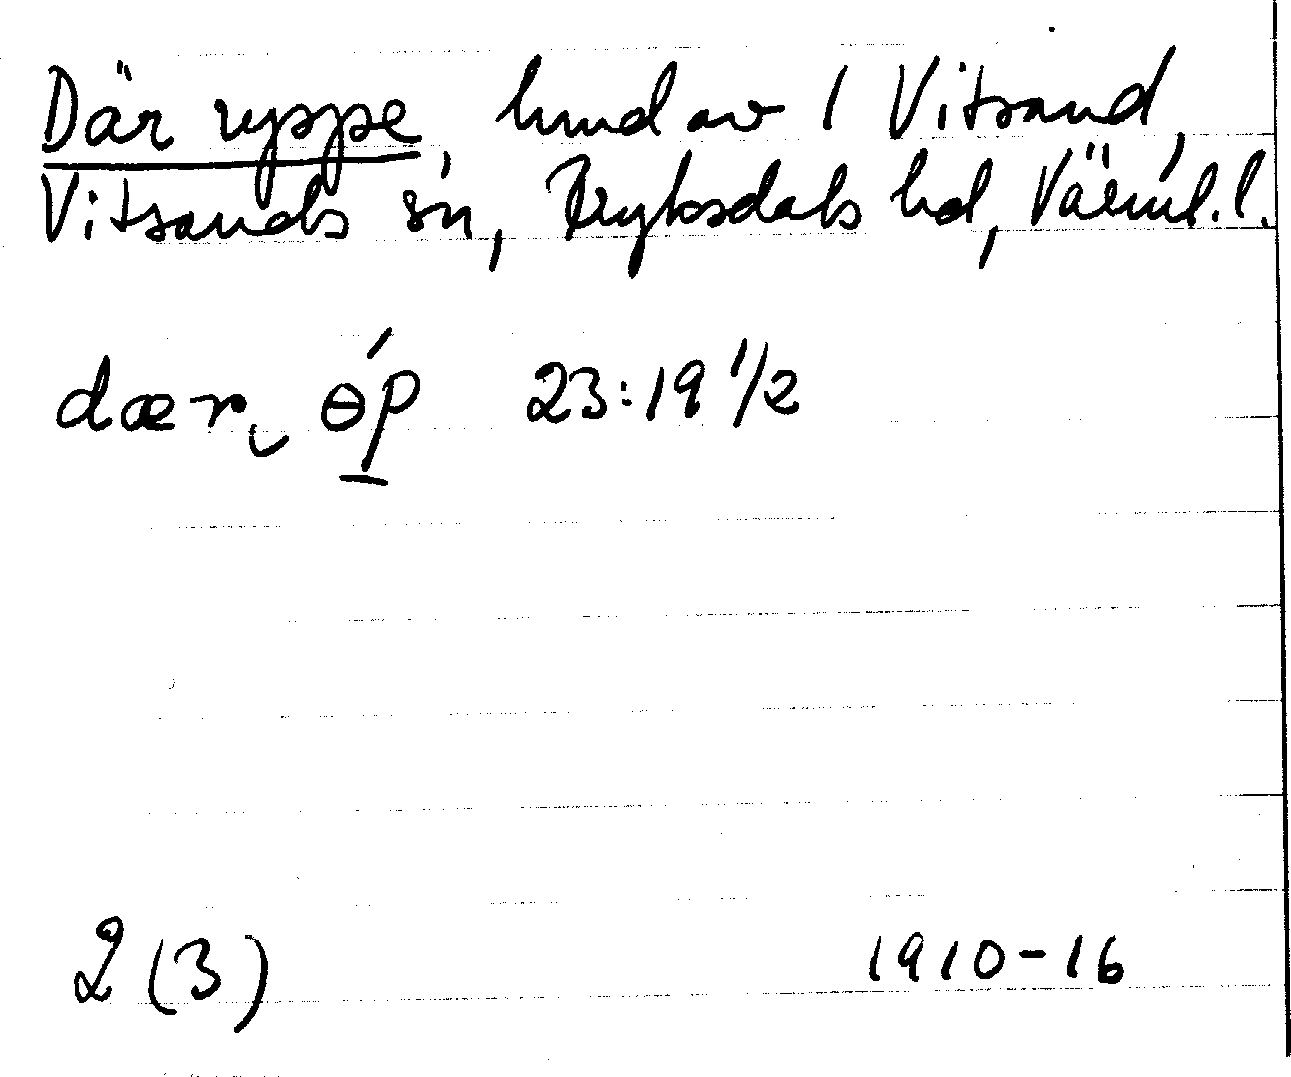 Där uppe, hmd av 1 Vitsand,
Vitsands sn, Fryksdals hd, Värml. l.
dær. ɵ́p 23:19 1/2
2 (3) 1910-16